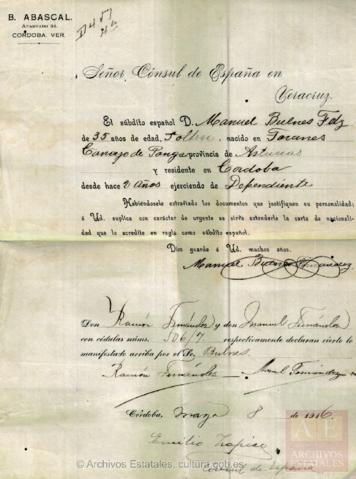 B. ABASCAL.
APARTADO 35.
CORDOBA, VER.
Señor Cónsul de España en
Veracruz.
El súbdito español D. Manuel Buenes Fdz
de 35 años de edad, Soltero, nacido en
Concejo de Ponga provincia de Asturias
y residente en Córdoba
desde hace 2 años ejerciendo de Dependiente
Habiéndosele extraviado los documentos que justifiquen su personalidad;
á Ud. suplica con carácter de urgente se sirva extenderle la carta de nacionali-
dad que lo acredite en regla como súbdito español.
Dios guarde á Ud. muchos años.
Manuel Buenes Fernandez
Don Ramón Fernández y don Manuel Fernández
con cédulas núms. 506/7 respectivamente declaran cierto lo
manifestado arriba por el Sr. Bulnes.
Ramón Fernández
Córdoba, Mayo 8 de 1916
Emilio
Consul de España
© Archivos Estatales, cultura.gob.es
ARCHIVOS
ESTATALES